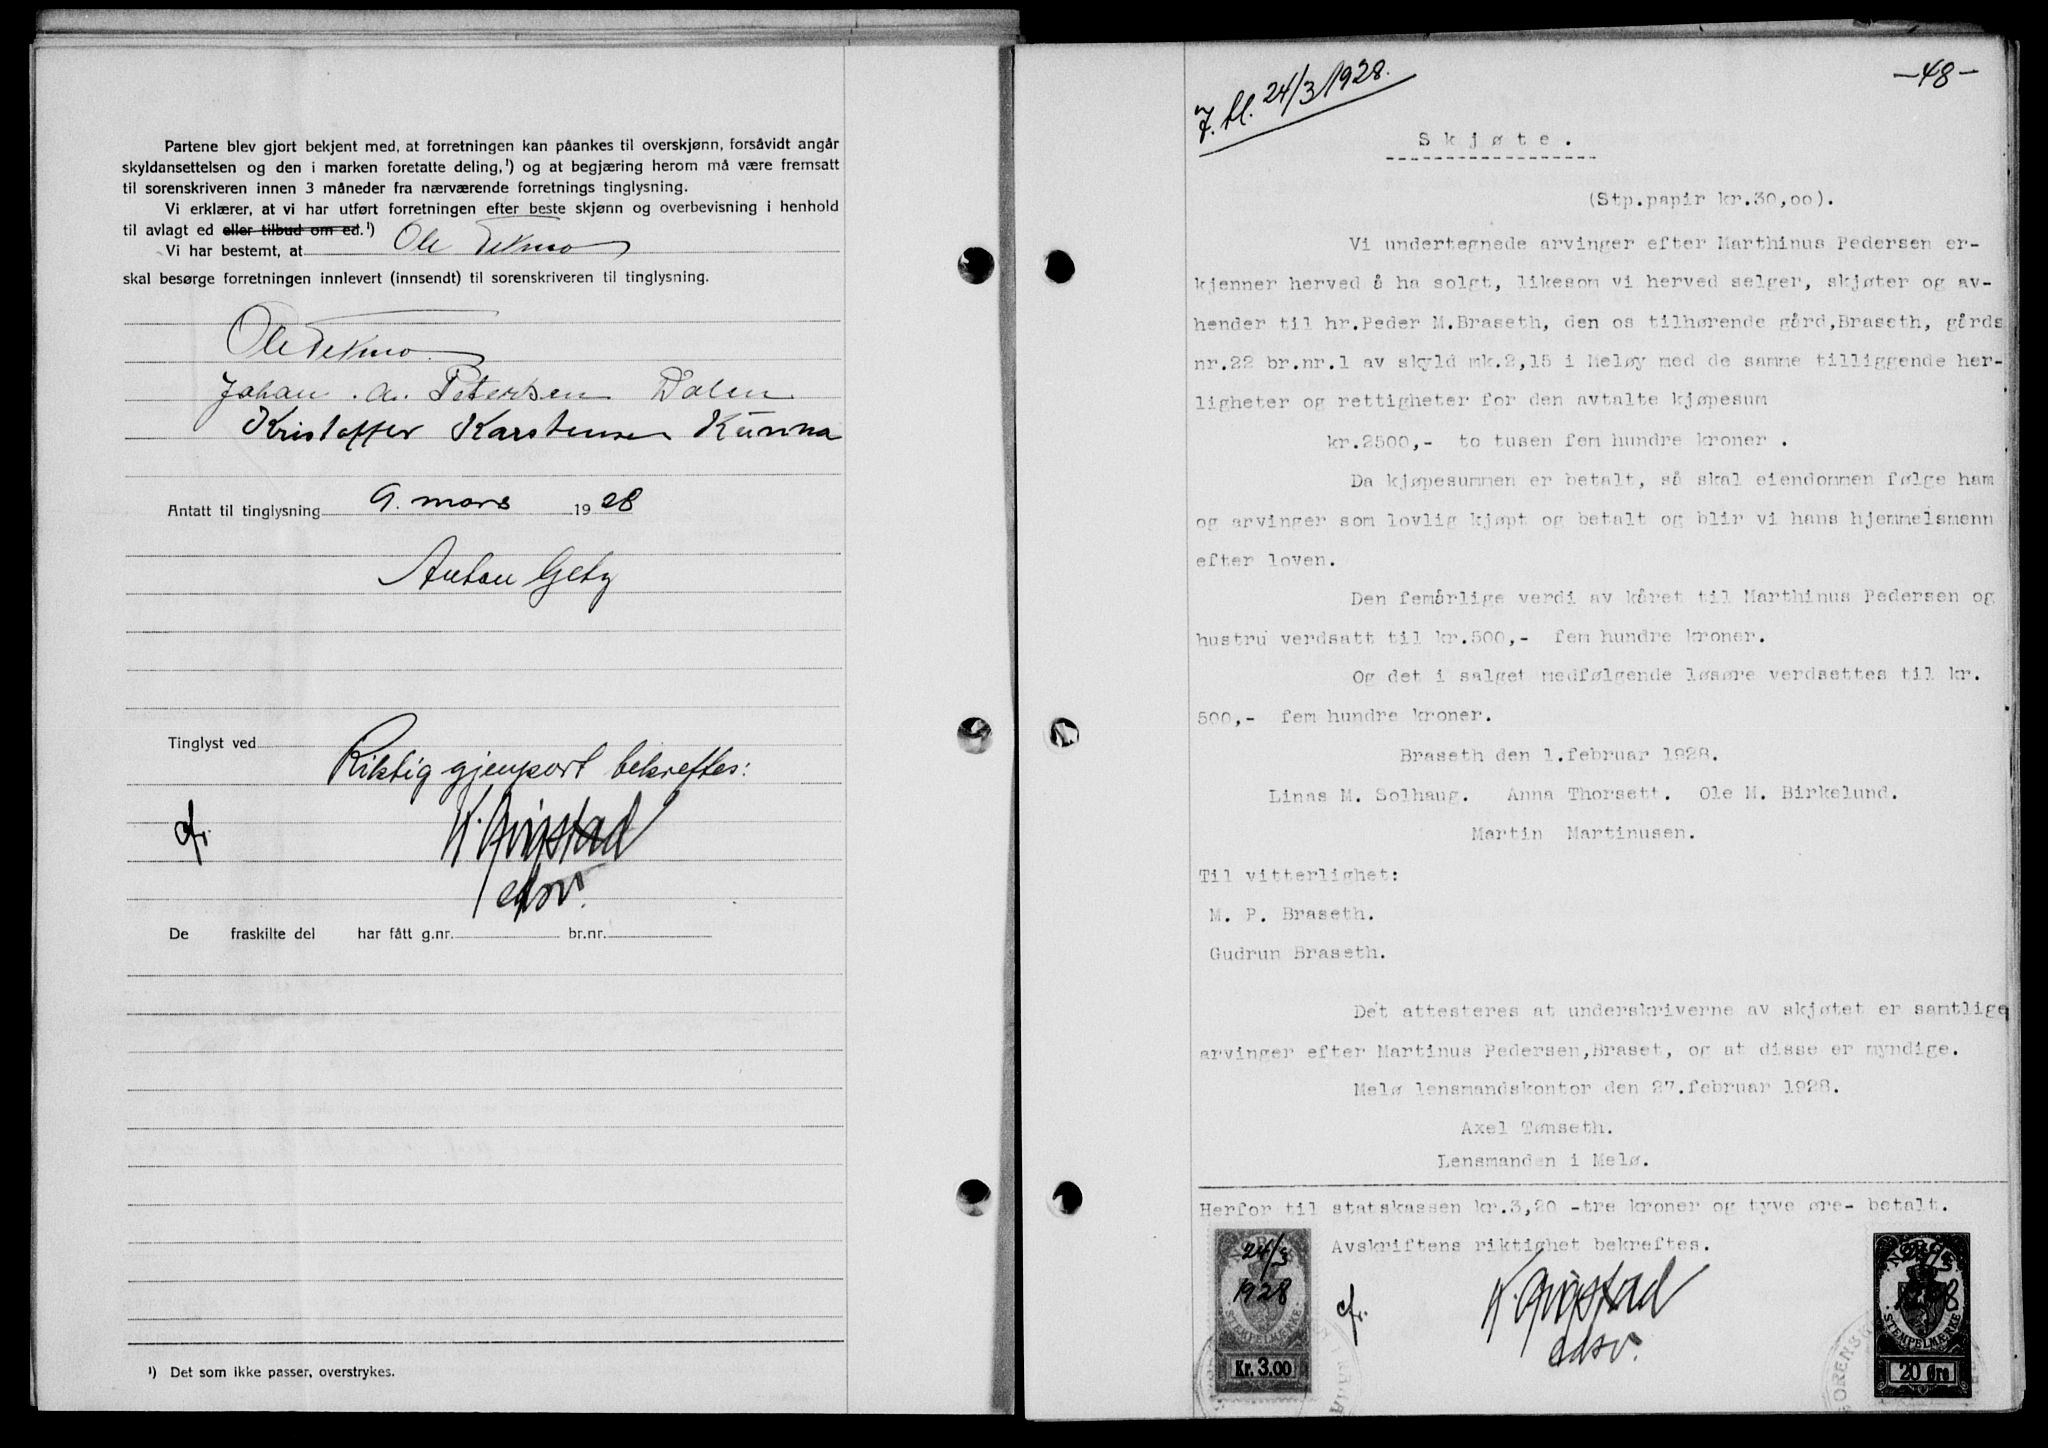 Partene blev gjort bekjent med, at forretningen kan påankes til overskjønn, forsåvidt angår
skyldansettelsen og den i marken foretatte deling,¹) og at begjæring herom må være fremsatt
til sorenskriveren innen 3 måneder fra nærværende forretnings tinglysning.
Vi erklærer, at vi har utført forretningen efter beste skjønn og overbevisning i henhold
til avlagt ed eller tilbud om ed.¹)
Vi har bestemt, at Ole
skal besørge forretningen innlevert (innsendt) til sorenskriveren til tinglysning.
Ole
Johan . A. Petersen Dalen
Kristoffer Karstensen Kunna
Antatt til tinglysning 9. mars 1928
Anton Getz
Tinglyst ved
Riktig gjenpart bekreftes:
De fraskilte del har fått g.nr. br.nr.
¹) Det som ikke passer, overstrykes.
-48-
24/3 1928.
Skjøte.
(Stp.papir kr.30,00).
Vi undertegnede arvinger efter Marthinus Pedersen er-
kjenner herved å ha solgt, likesom vi herved selger, skjøter og av-
hender til hr.Peder M.Braseth, den os tilhørende gård,Braseth, gårds
nr.22 br.nr.1 av skyld mk.2,15 i Meløy med de samme tilliggende her-
ligheter og rettigheter for den avtalte kjøpesum
kr.2500,- to tusen fem hundre kroner .
Da kjøpesummen er betalt, så skal eiendommen følge ham
og arvinger som lovlig kjøpt og betalt og blir vi hans hjemmelsmenn
efter loven.
Den femårlige verdi av kåret til Marthinus Pedersen og
hustru verdsatt til kr.500,- fem hundre kroner.
Og det i salget medfølgende løsøre verdsettes til kr.
500,- fem hundre kroner.
Braseth den 1.februar 1928.
Linas M. Solhaug. Anna Thorsett. Ole M. Birkelund.
Martin Martinusen.
Til vitterlighet:
M. P. Braseth.
Gudrun Braseth.
Det attesteres at underskriverne av skjøtet er samtlige
arvinger efter Martinus Pedersen,Braset, og at disse er myndige.
Melø lensmandskontor den 27.februar 1928.
Axel Tønseth.
Lensmanden i Melø.
Herfor til statskassen kr.3,20 -tre kroner og tyve øre- betalt.
Avskriftens riktighet bekreftes.
24/3
1928
STEMPELMÆRKE
Kr. 3.00
NORGE
STEMPELMÆRKE
20 Øre
SORENSK